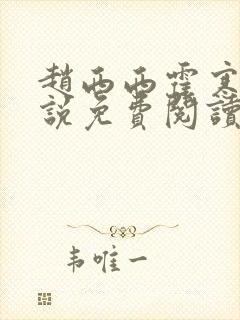 趙西西霍
說免費閱讀
韦唯一